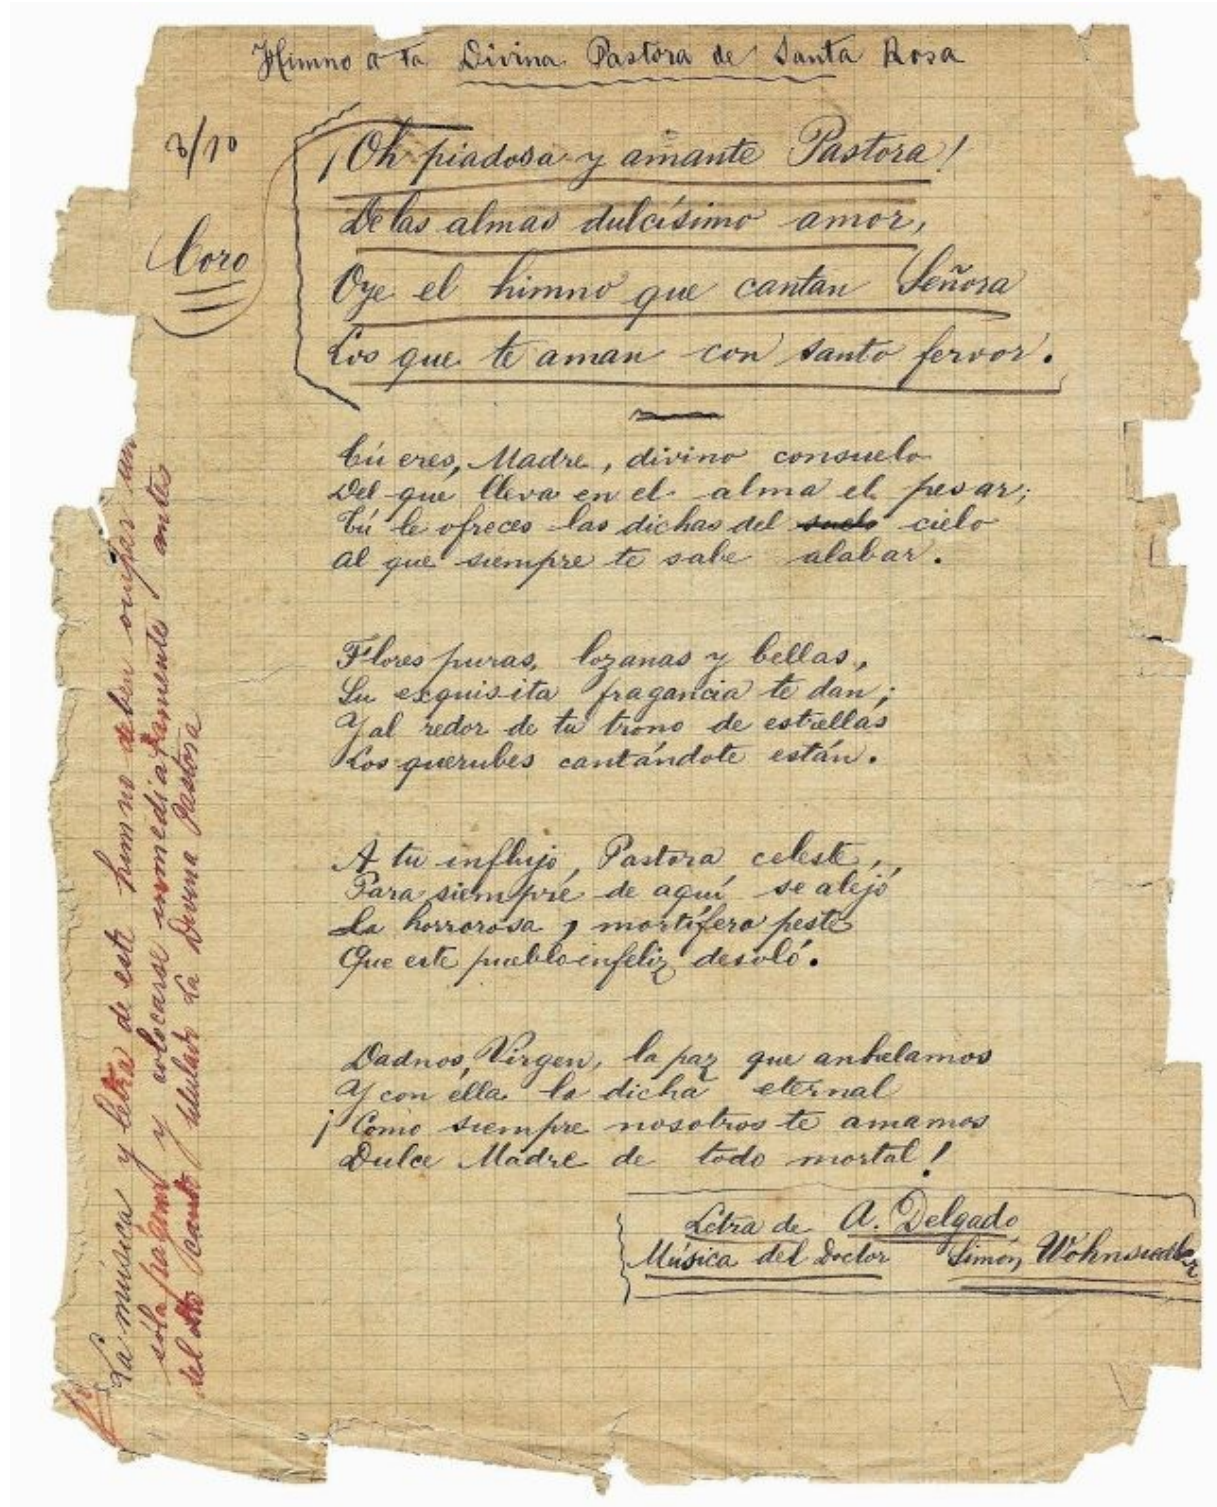 Himno a la Divina Pastora de Santa Rosa
3/10
Coro
¡Oh piadosa y amante Pastora!
De las almas dulcísimo amor,
Oye el himno que cantan Señora
Los que te aman con santo fervor.
Tú eres, Madre, divino consuelo
Del que lleva en el alma el pesar;
Tú le ofreces las dichas del suelo cielo
Al que siempre te sabe alabar.
Flores puras, lozanas y bellas,
Su exquisita fragancia te dan;
Y al redor de tu trono de estrellas
Los querubes cantándote están.
A tu influjo, Pastora celeste,
Para siempre de aquí se alejó
La horrorosa y mortífera peste
Que este pueblo infeliz desoló.
Dadnos, Virgen, la paz que anhelamos
Y con ella la dicha eternal
¡Como siempre nosotros te amamos
Dulce Madre de todo mortal!
Letra de A. Delgado
Música del Doctor Simón Wohnsiedler
La música y letra de este himno deben ocupar una
sóla página y colocarse inmediatamente antes
del canto titulado La Divina Pastora